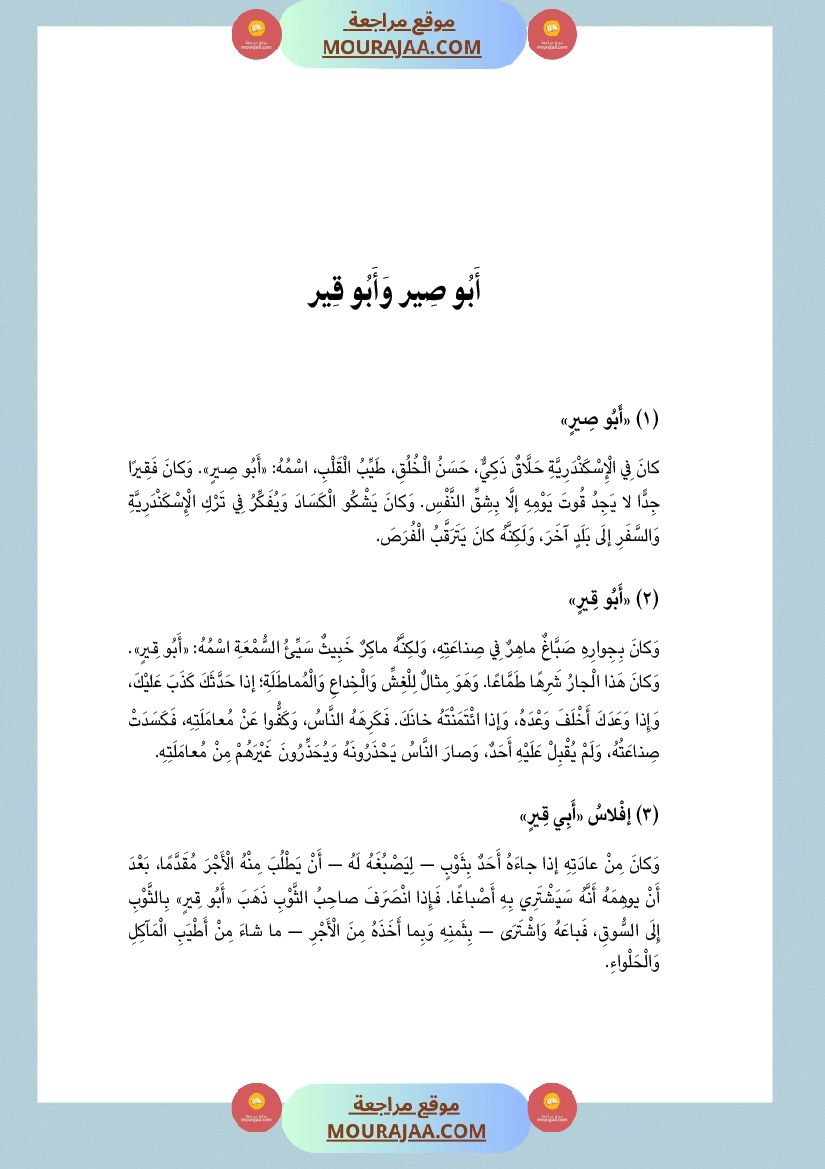 موقع مراجعة
MOURAJAA.COM
أَبُو صِير وَأَبُو قِير
(١) «أَبُو صِيرٍ»
كانَ فِي الْإِسْكَنْدَرِيَّةِ حَلَّاقٌ ذَكِيٌّ، حَسَنُ الْخُلُقِ، طَيِّبُ الْقَلْبِ، اسْمُهُ: «أَبُو صِيرٍ». وَكانَ فَقِيرًا
جِدًّا لا يَجِدُ قُوتَ يَوْمِهِ إلَّا بِشِقِّ النَّفْسِ. وَكانَ يَشْكُو الْكَسَادَ وَيُفَكِّرُ فِي تَرْكِ الْإِسْكَنْدَرِيَّةِ
وَالسَّفَرِ إلَى بَلَدٍ آخَرَ، وَلَكِنَّهُ كانَ يَتَرَقَّبُ الْفُرَصَ.
(٢) «أَبُو قِيرٍ»
وَكانَ بِجِوارِهِ صَبَّاغٌ ماهِرٌ فِي صِناعَتِهِ، وَلكِنَّهُ ماكِرٌ خَبِيثٌ سَيِّئُ السُّمْعَةِ اسْمُهُ: «أَبُو قِيرٍ».
وَكانَ هَذا الْجارُ شَرِهًا طَمَّاعًا. وَهُوَ مِثالٌ لِلْغِشِّ وَالْخِداعِ وَالْمُماطَلَةِ؛ إذا حَدَّثَكَ كَذَبَ عَلَيْكَ،
وَإِذا وَعَدَكَ أَخْلَفَ وَعْدَهُ، وَإذا ائْتَمَنْتَهُ خانَكَ. فَكَرِهَهُ النَّاسُ، وَكَفُّوا عَنْ مُعامَلَتِهِ، فَكَسَدَتْ
صِناعَتُهُ، وَلَمْ يُقْبِلْ عَلَيْهِ أَحَدٌ، وَصارَ النَّاسُ يَحْذَرُونَهُ وَيُحَذِّرُونَ غَيْرَهُمْ مِنْ مُعامَلَتِهِ.
(٣) إفْلاسُ «أَبِي قِيرٍ»
وَكانَ مِنْ عادَتِهِ إذا جاءَهُ أَحَدٌ بِثَوْبٍ — لِيَصْبُغَهُ لَهُ — أَنْ يَطْلُبَ مِنْهُ الْأَجْرَ مُقَدَّمًا، بَعْدَ
أَنْ يوهِمَهُ أَنَّهُ سَيَشْتَرِي بِهِ أَصْباغًا. فَإِذا انْصَرَفَ صاحِبُ الثَّوْبِ ذَهَبَ «أَبُو قِيرٍ» بِالثَّوْبِ
إِلَى السُّوقِ، فَباعَهُ وَاشْتَرَى — بِثَمنِهِ وَبِما أَخَذَهُ مِنَ الْأَجْرِ — ما شاءَ مِنْ أَطْيَبِ الْمَآكِلِ
وَالْحَلْواءِ.
موقع مراجعة
MOURAJAA.COM